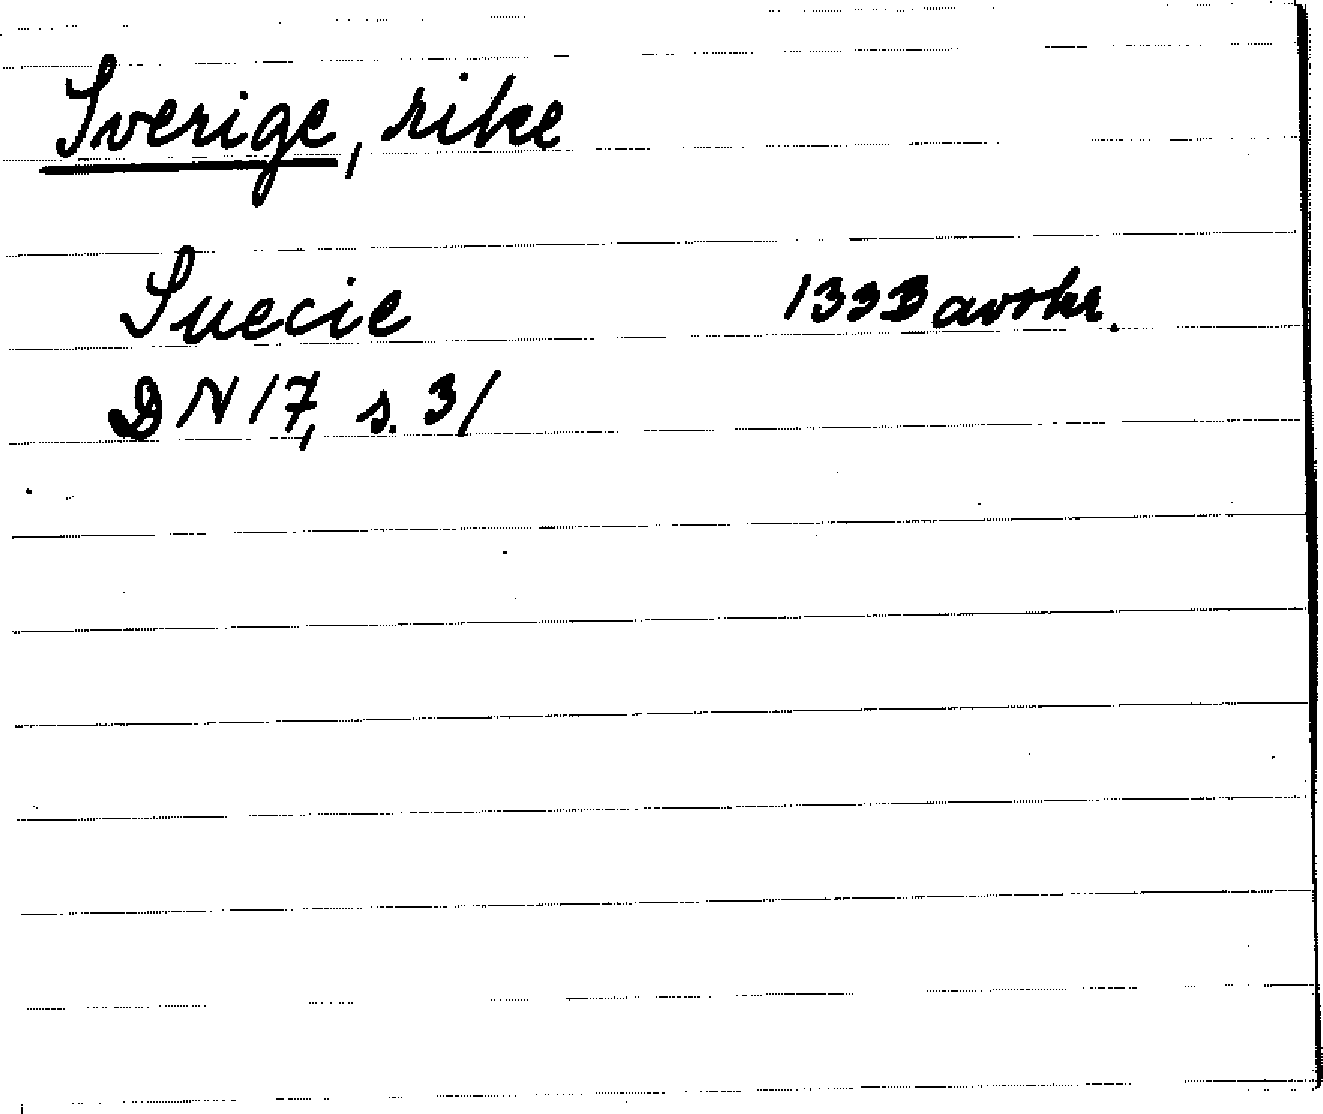 Sverige, rike
Suecie 1333 avskr.
DN 17, s. 31